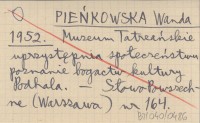 PIEŃKOWSKA Wanda
1952. Muzeum Tatrzańskie
uprzystępnia społeczeństwu
poznanie bogactw kultury
Podhala. – Słowo Powszech-
ne (Warszawa) nr 164.